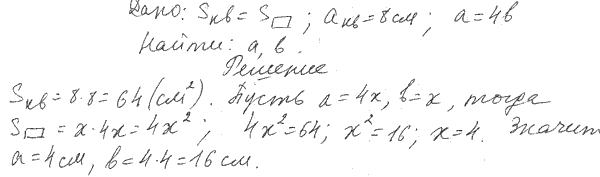 Дано: Sкв = S▭ ; aкв = 8 см ; a = 4b
Найти: a, b.
Решение
Sкв = 8·8 = 64 (см²). Пусть a = 4x, b = x, тогда
S▭ = x·4x = 4x² ; 4x² = 64; x² = 16; x = 4. Значит
a = 4 см, b = 4·4 = 16 см.